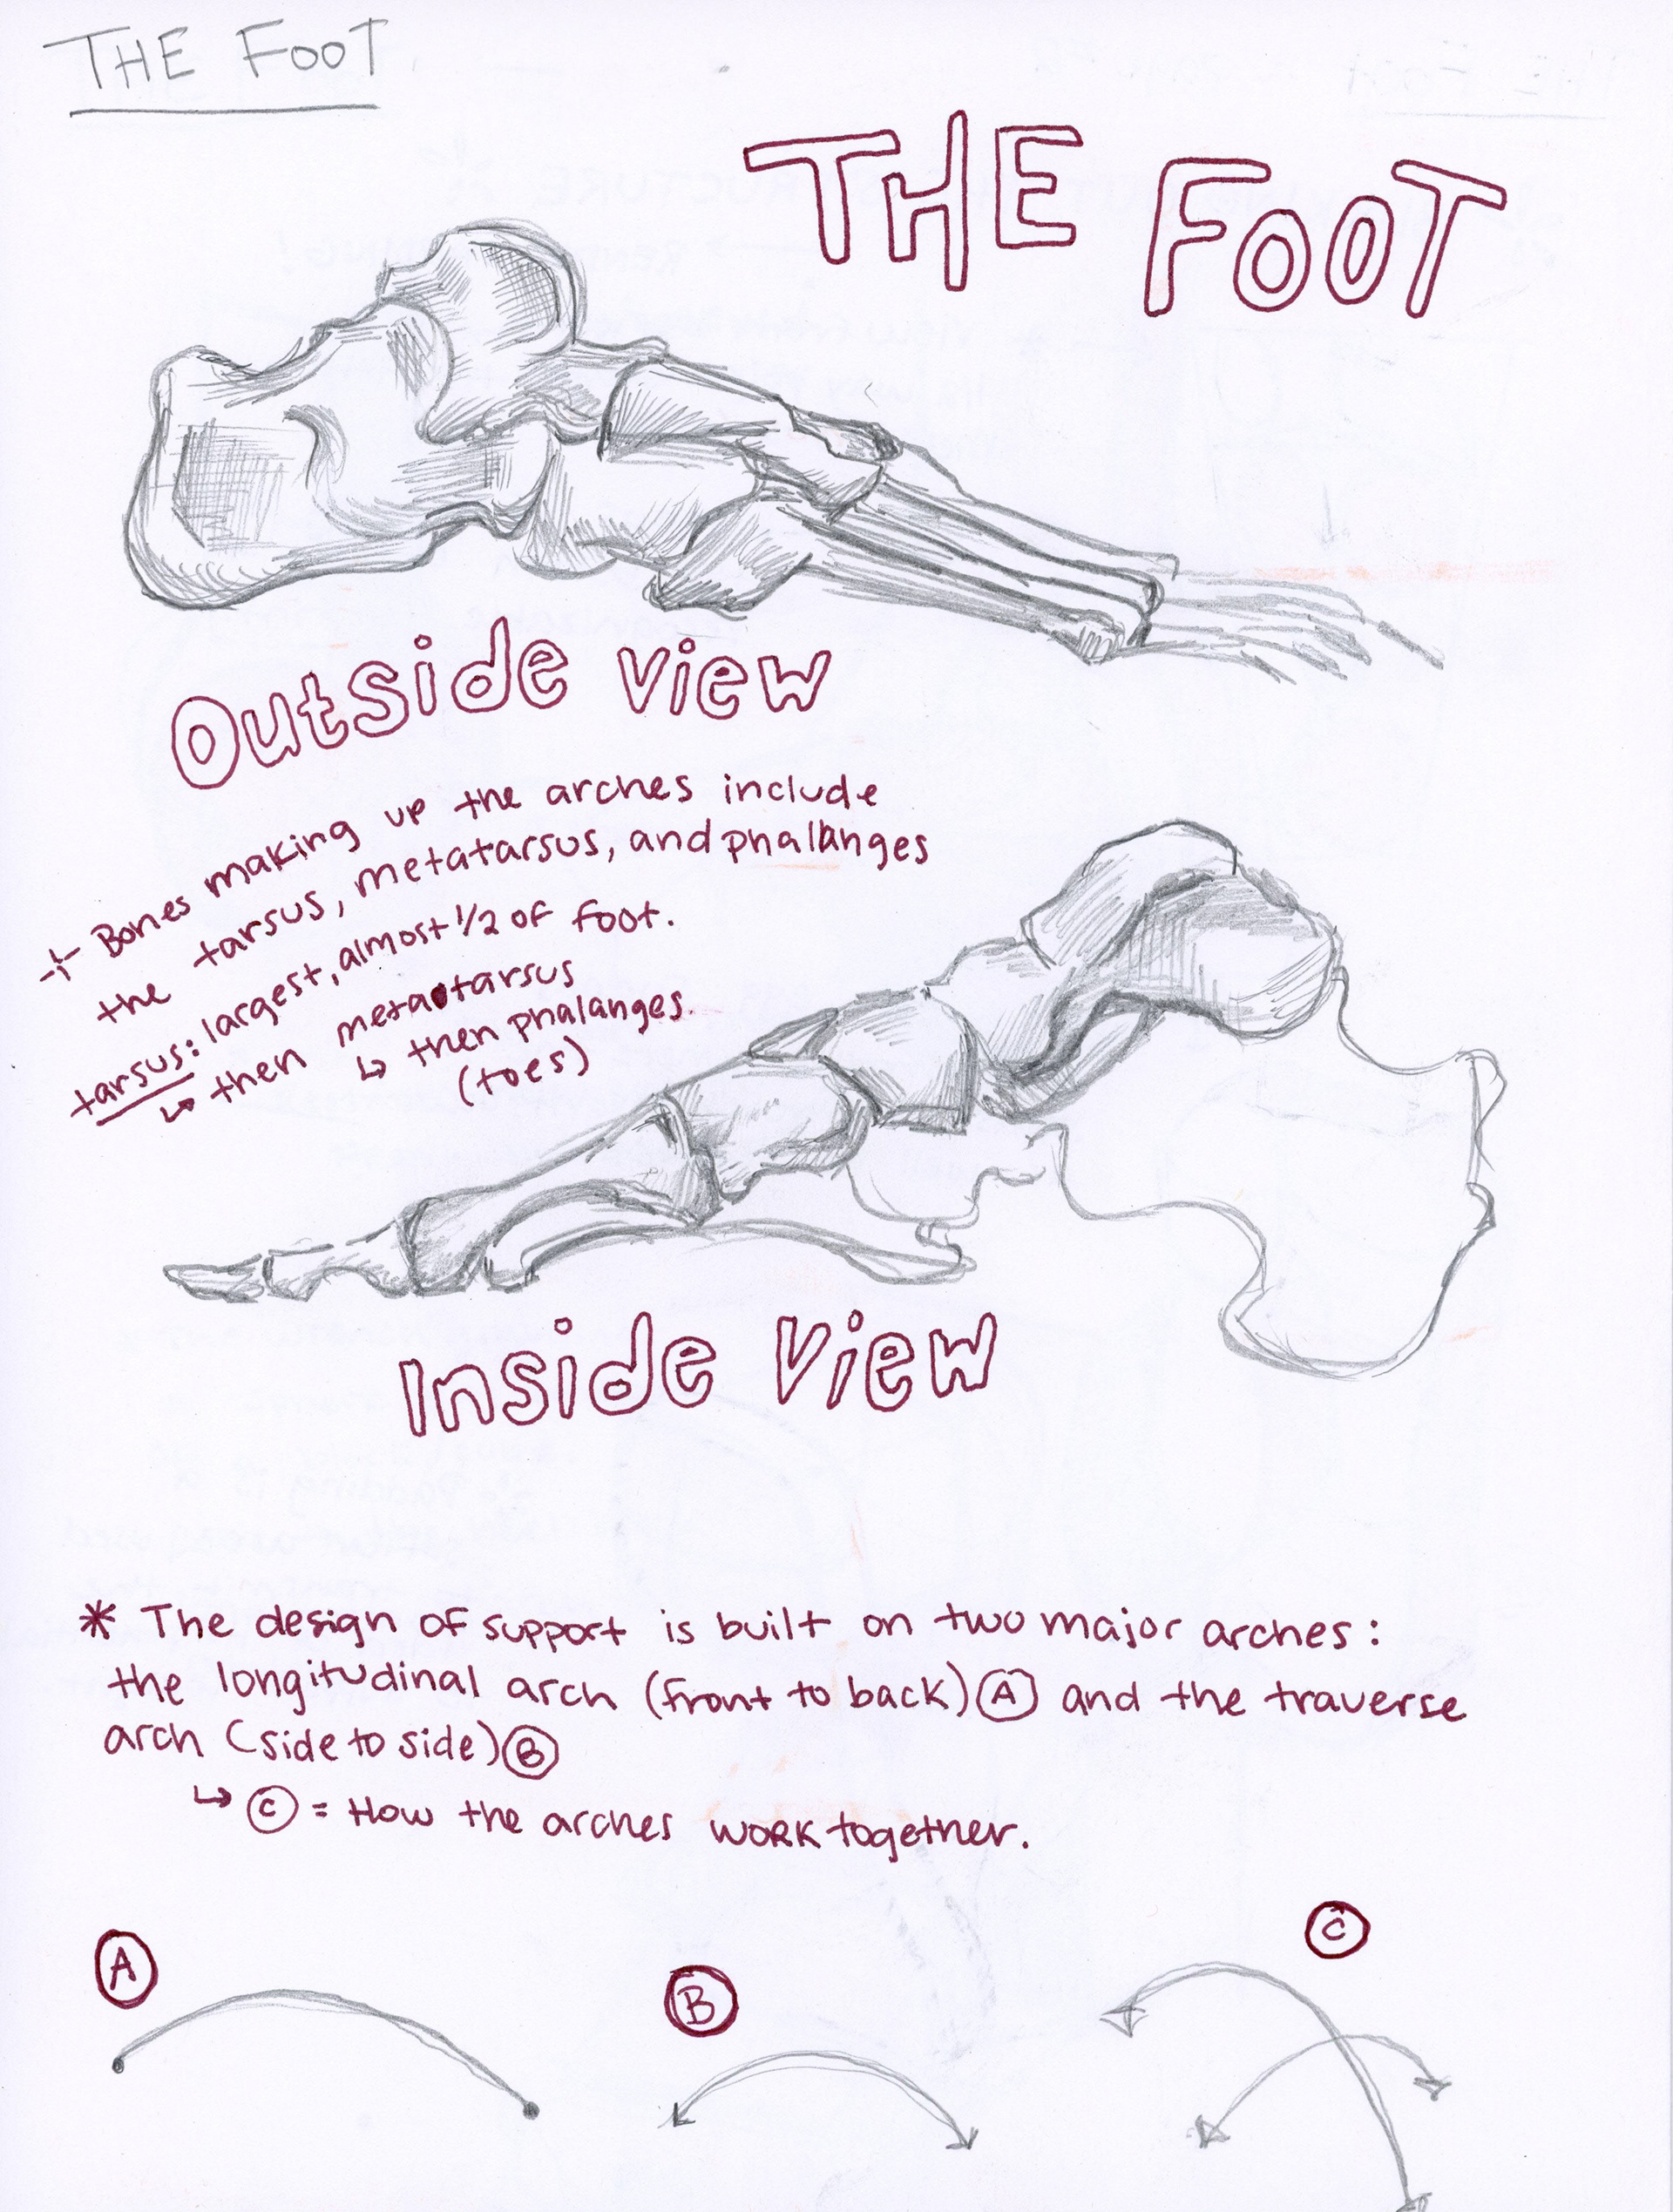 THE FOOT
THE FOOT
Outside view
Bones making up the arches include
the tarsus, metatarsus, and phalanges
tarsus: largest, almost 1/2 of foot.
↳ then metatarsus
↳ then phalanges.
(toes)
Inside View
* The design of support is built on two major arches:
the longitudinal arch (front to back) Ⓐ and the traverse
arch (side to side) Ⓑ
↳ Ⓒ = How the arches work together.
Ⓐ
Ⓑ
Ⓒ